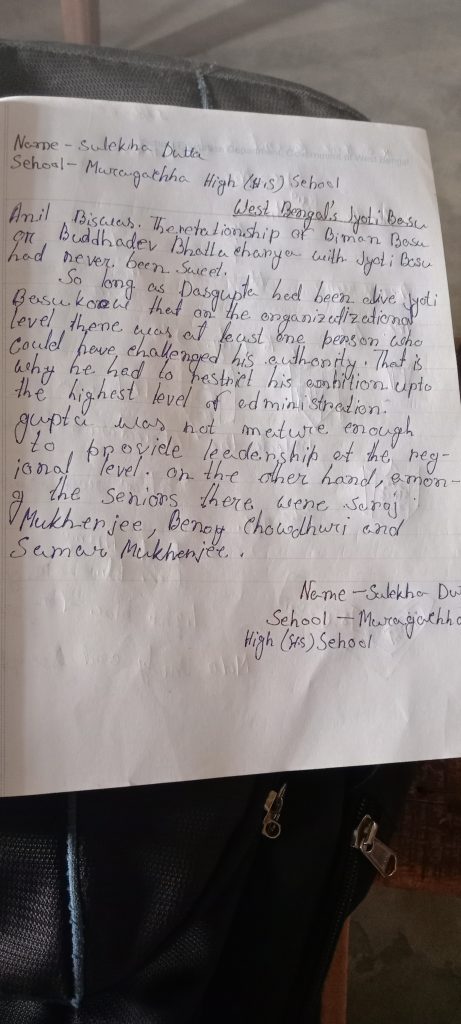 Name - Sulekha Dutta
School - Muragachha High (HS) School
West Bengal's Jyoti Basu
Anil Biswas. The relationship of Biman Basu
or Buddhadev Bhattacharya with Jyoti Basu
had never been sweet.
So long as Dasgupta had been alive Jyoti
Basu knew that on the organizatizational
level there was at least one person who
could have challenged his authority. That is
why he had to restrict his ambition upto
the highest level of administration.
gupta was not mature enough
to provide leadership at the reg-
ional level. on the other hand, amon-
g the seniors there were Saroj
Mukherjee, Benoy Chowdhuri and
Samar Mukherjee.
Name - Sulekha Du
School - Muragachha
High (HS) School